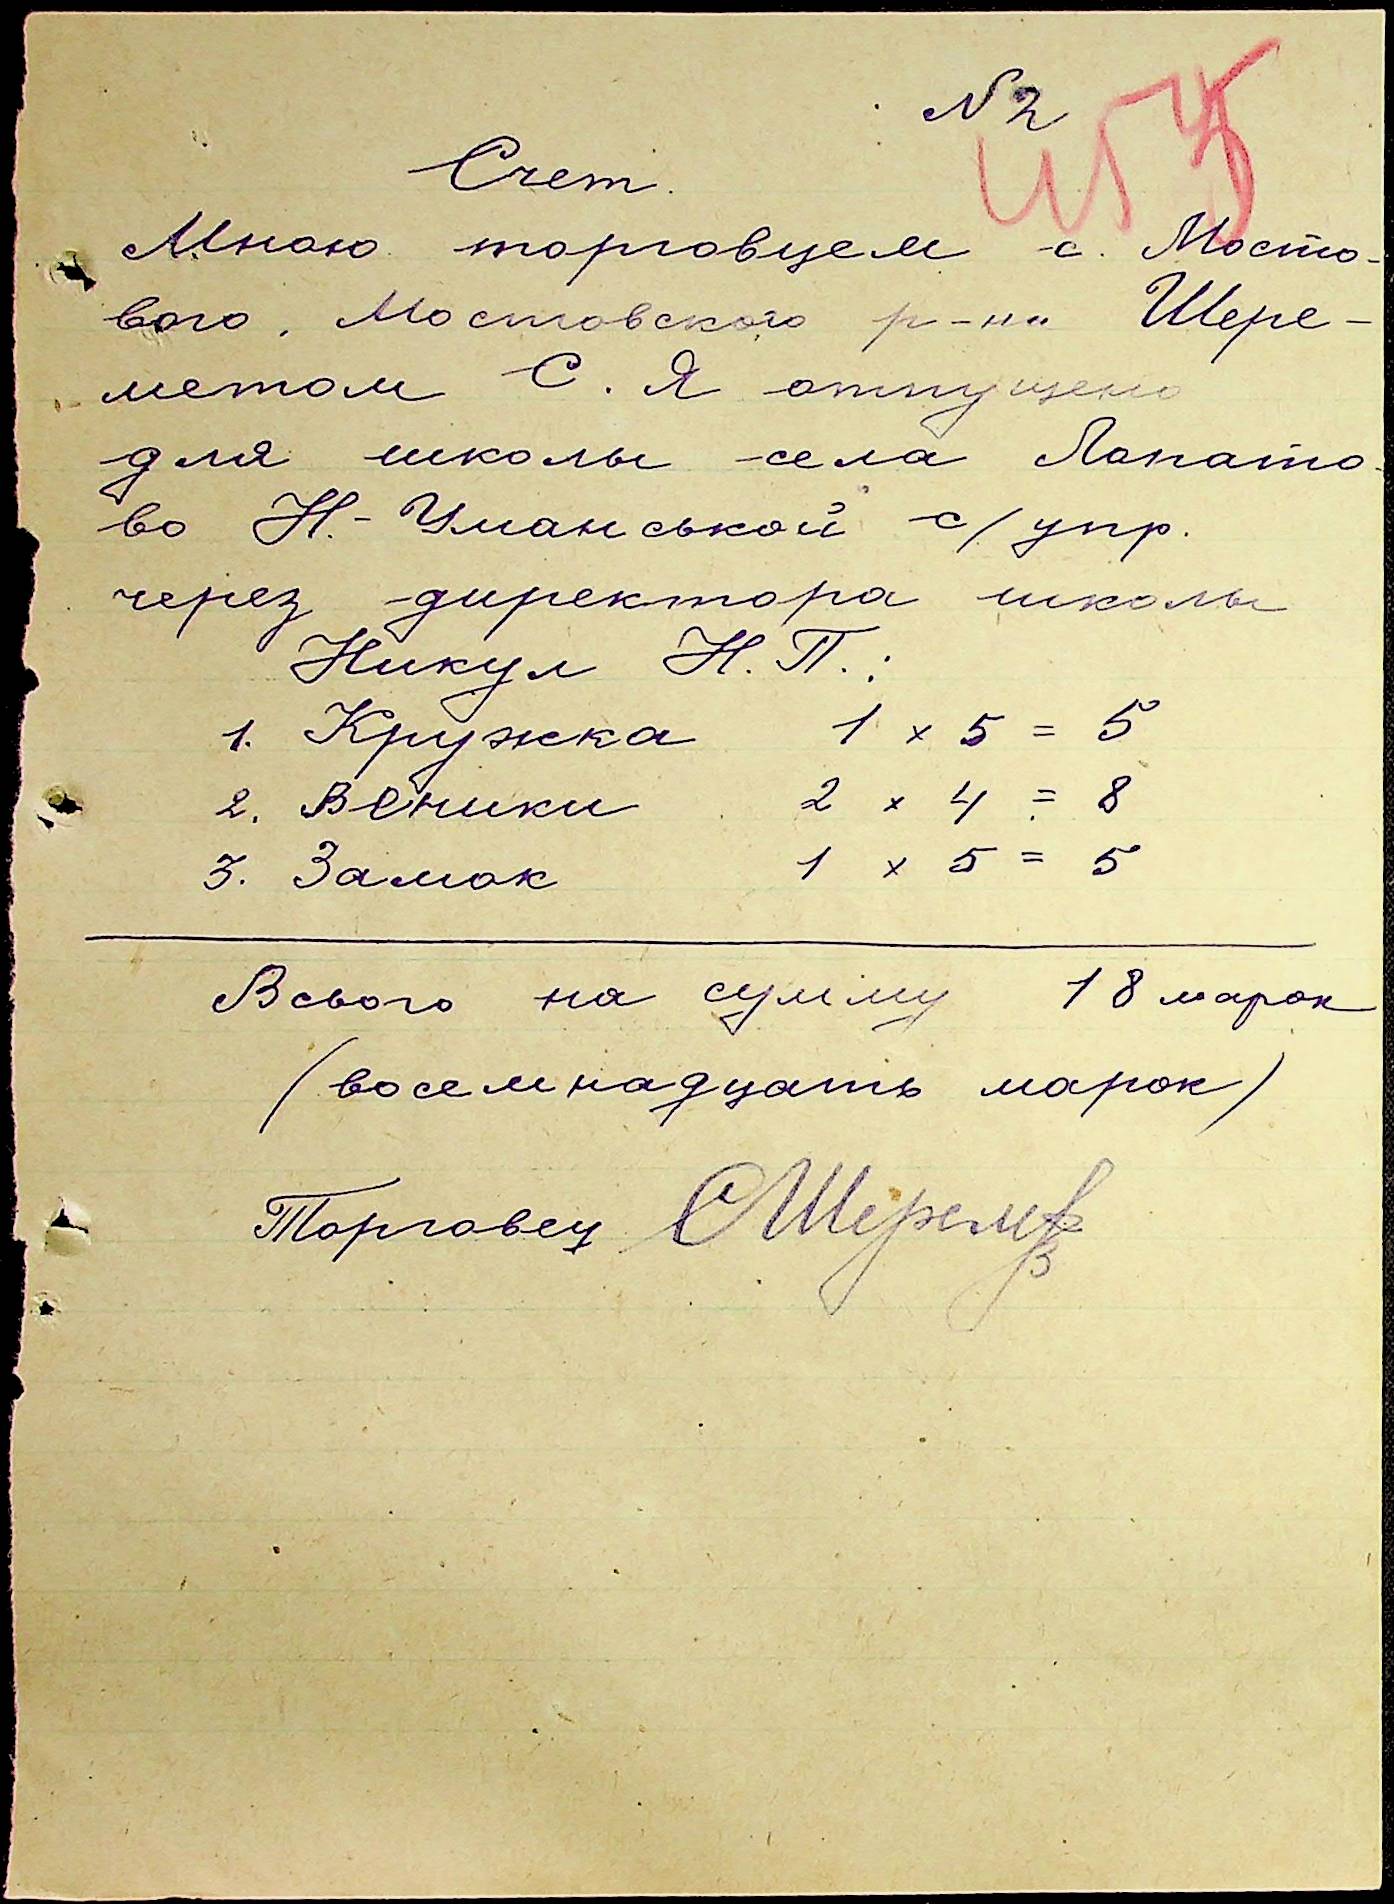 N 2
Счет.
Мною торговцем с. Мосто-
вого, Мостовского р-на Шере-
метом С. Я отпущено
для школы села Лопато-
во Н.-Уманськой с/упр.
через директора школы
Никул Н.П.:
1. Кружка 1 × 5 = 5
2. Веники 2 × 4 = 8
3. Замок 1 × 5 = 5
Всього на сумму 18 марок
(восемнадцать марок)
Торговец СШеремет